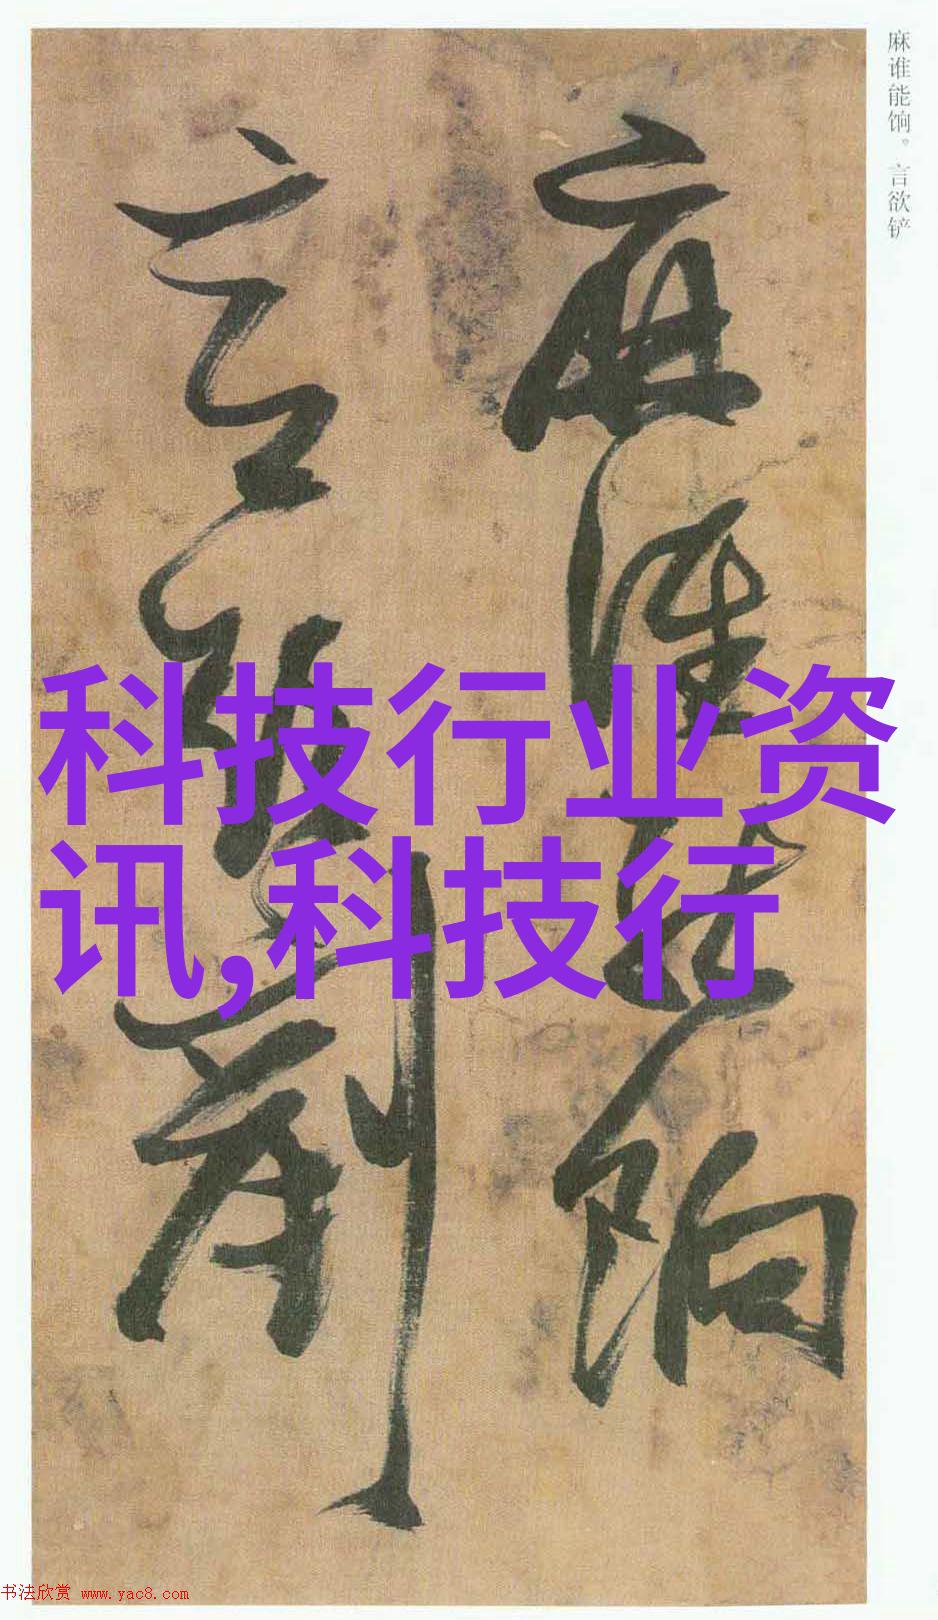 麻谁能饷。言欲铲
麻谁能饷
言欲剷
科技行业资
讯,科技行
书法欣赏 www.yac8.com